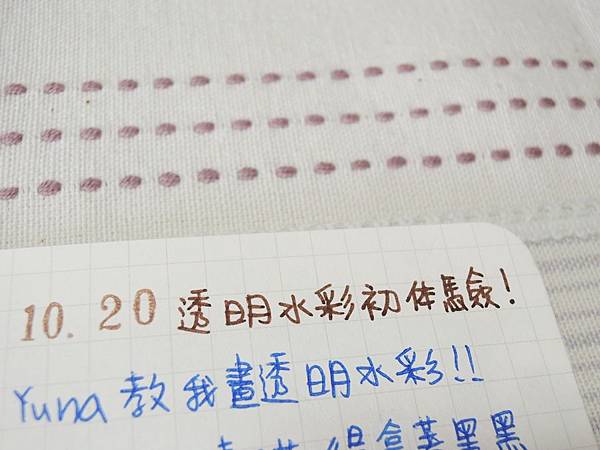 10.20 透明水彩初体驗!
Yuna 教我畫透明水彩!!
黑黑